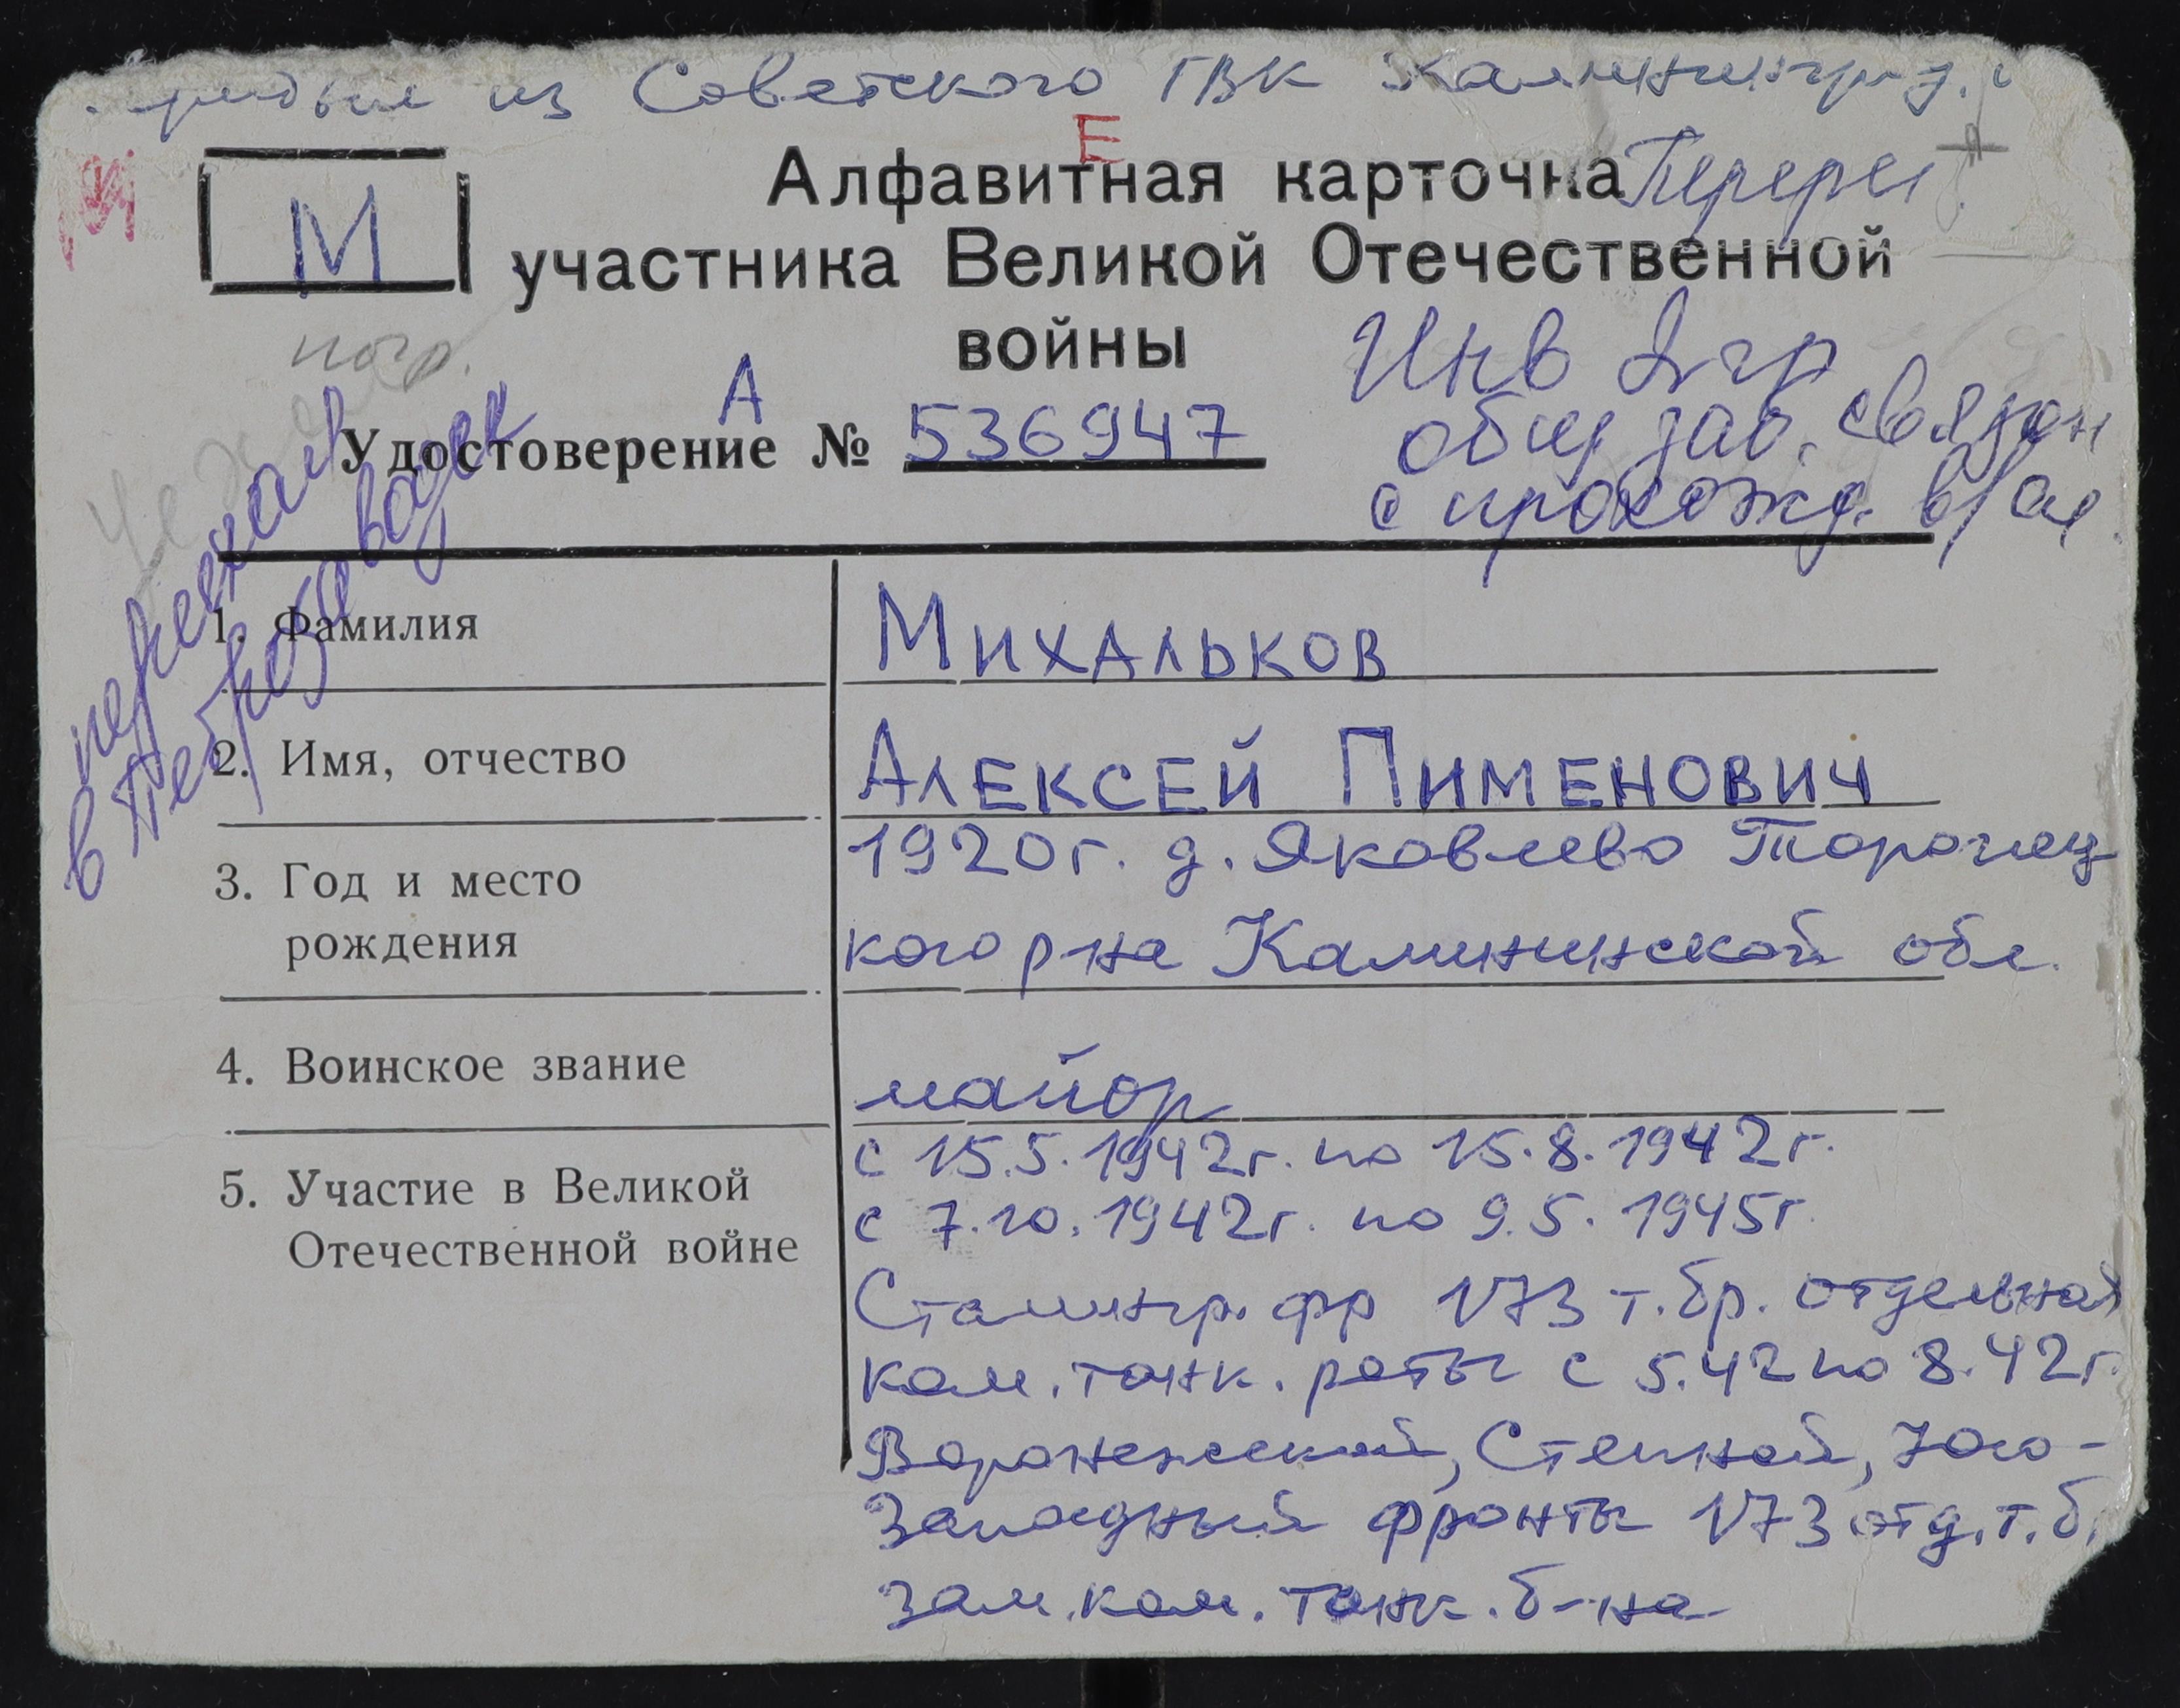 прибыл из Советского ГВК Калинингр.
Е
Алфавитная карточка
Перерег.
М
участника Великой Отечественной
войны
Инв 2 гр
общ заб. связан
с прохожд. в/сл.
А
Удостоверение № 536947
переехал
в Петрозаводск
1. Фамилия
Михальков
2. Имя, отчество
Алексей Пименович
3. Год и место
рождения
1920г. д. Яковлево Торопец
кого р на Калининской обл.
4. Воинское звание
майор
5. Участие в Великой
Отечественной войне
с 15.5.1942г. по 15.8.1942г.
с 7.10.1942г. по 9.5.1945г.
Сталингр. фр 173 т.бр. отдельная
ком. танк. роты с 5.42 по 8.42г.
Воронежский, Степной, Юго-
Западный фронты 173 отд.т.б.
зам.ком.танк.б-на